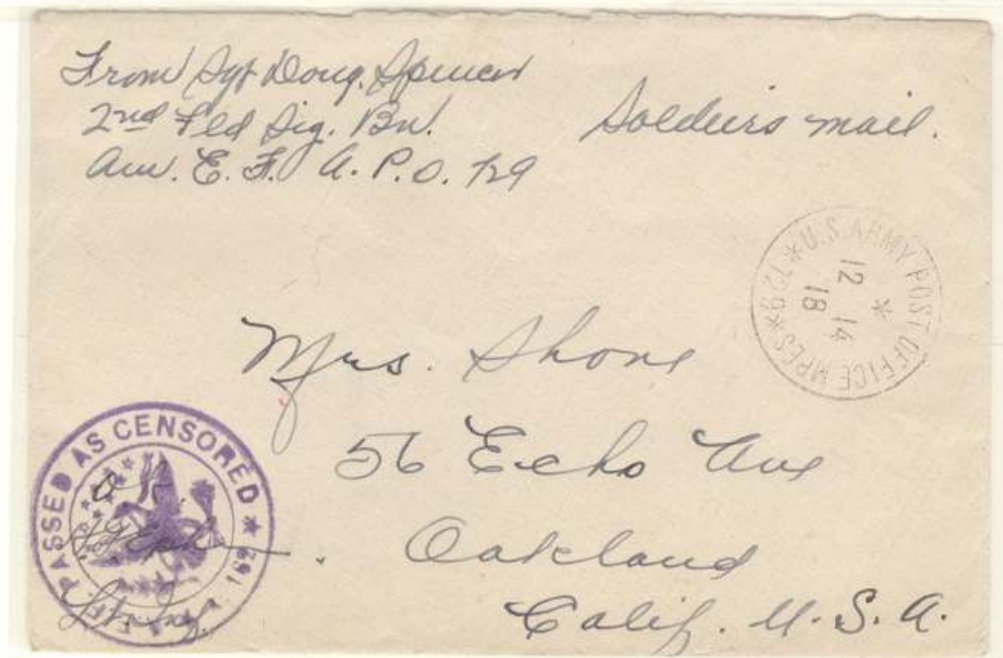 From Sgt Doug. Spencer
2nd Fld Sig. Bn.
Am. E. F. A. P. O. 729
Soldiers mail.
* U.S. ARMY POST OFFICE MPES * 729
*
12 14
18
Mrs. Shone
56 Echo Ave
Oakland
Calif. U. S. A.
A.E.F. PASSED AS CENSORED * 169
O.K.